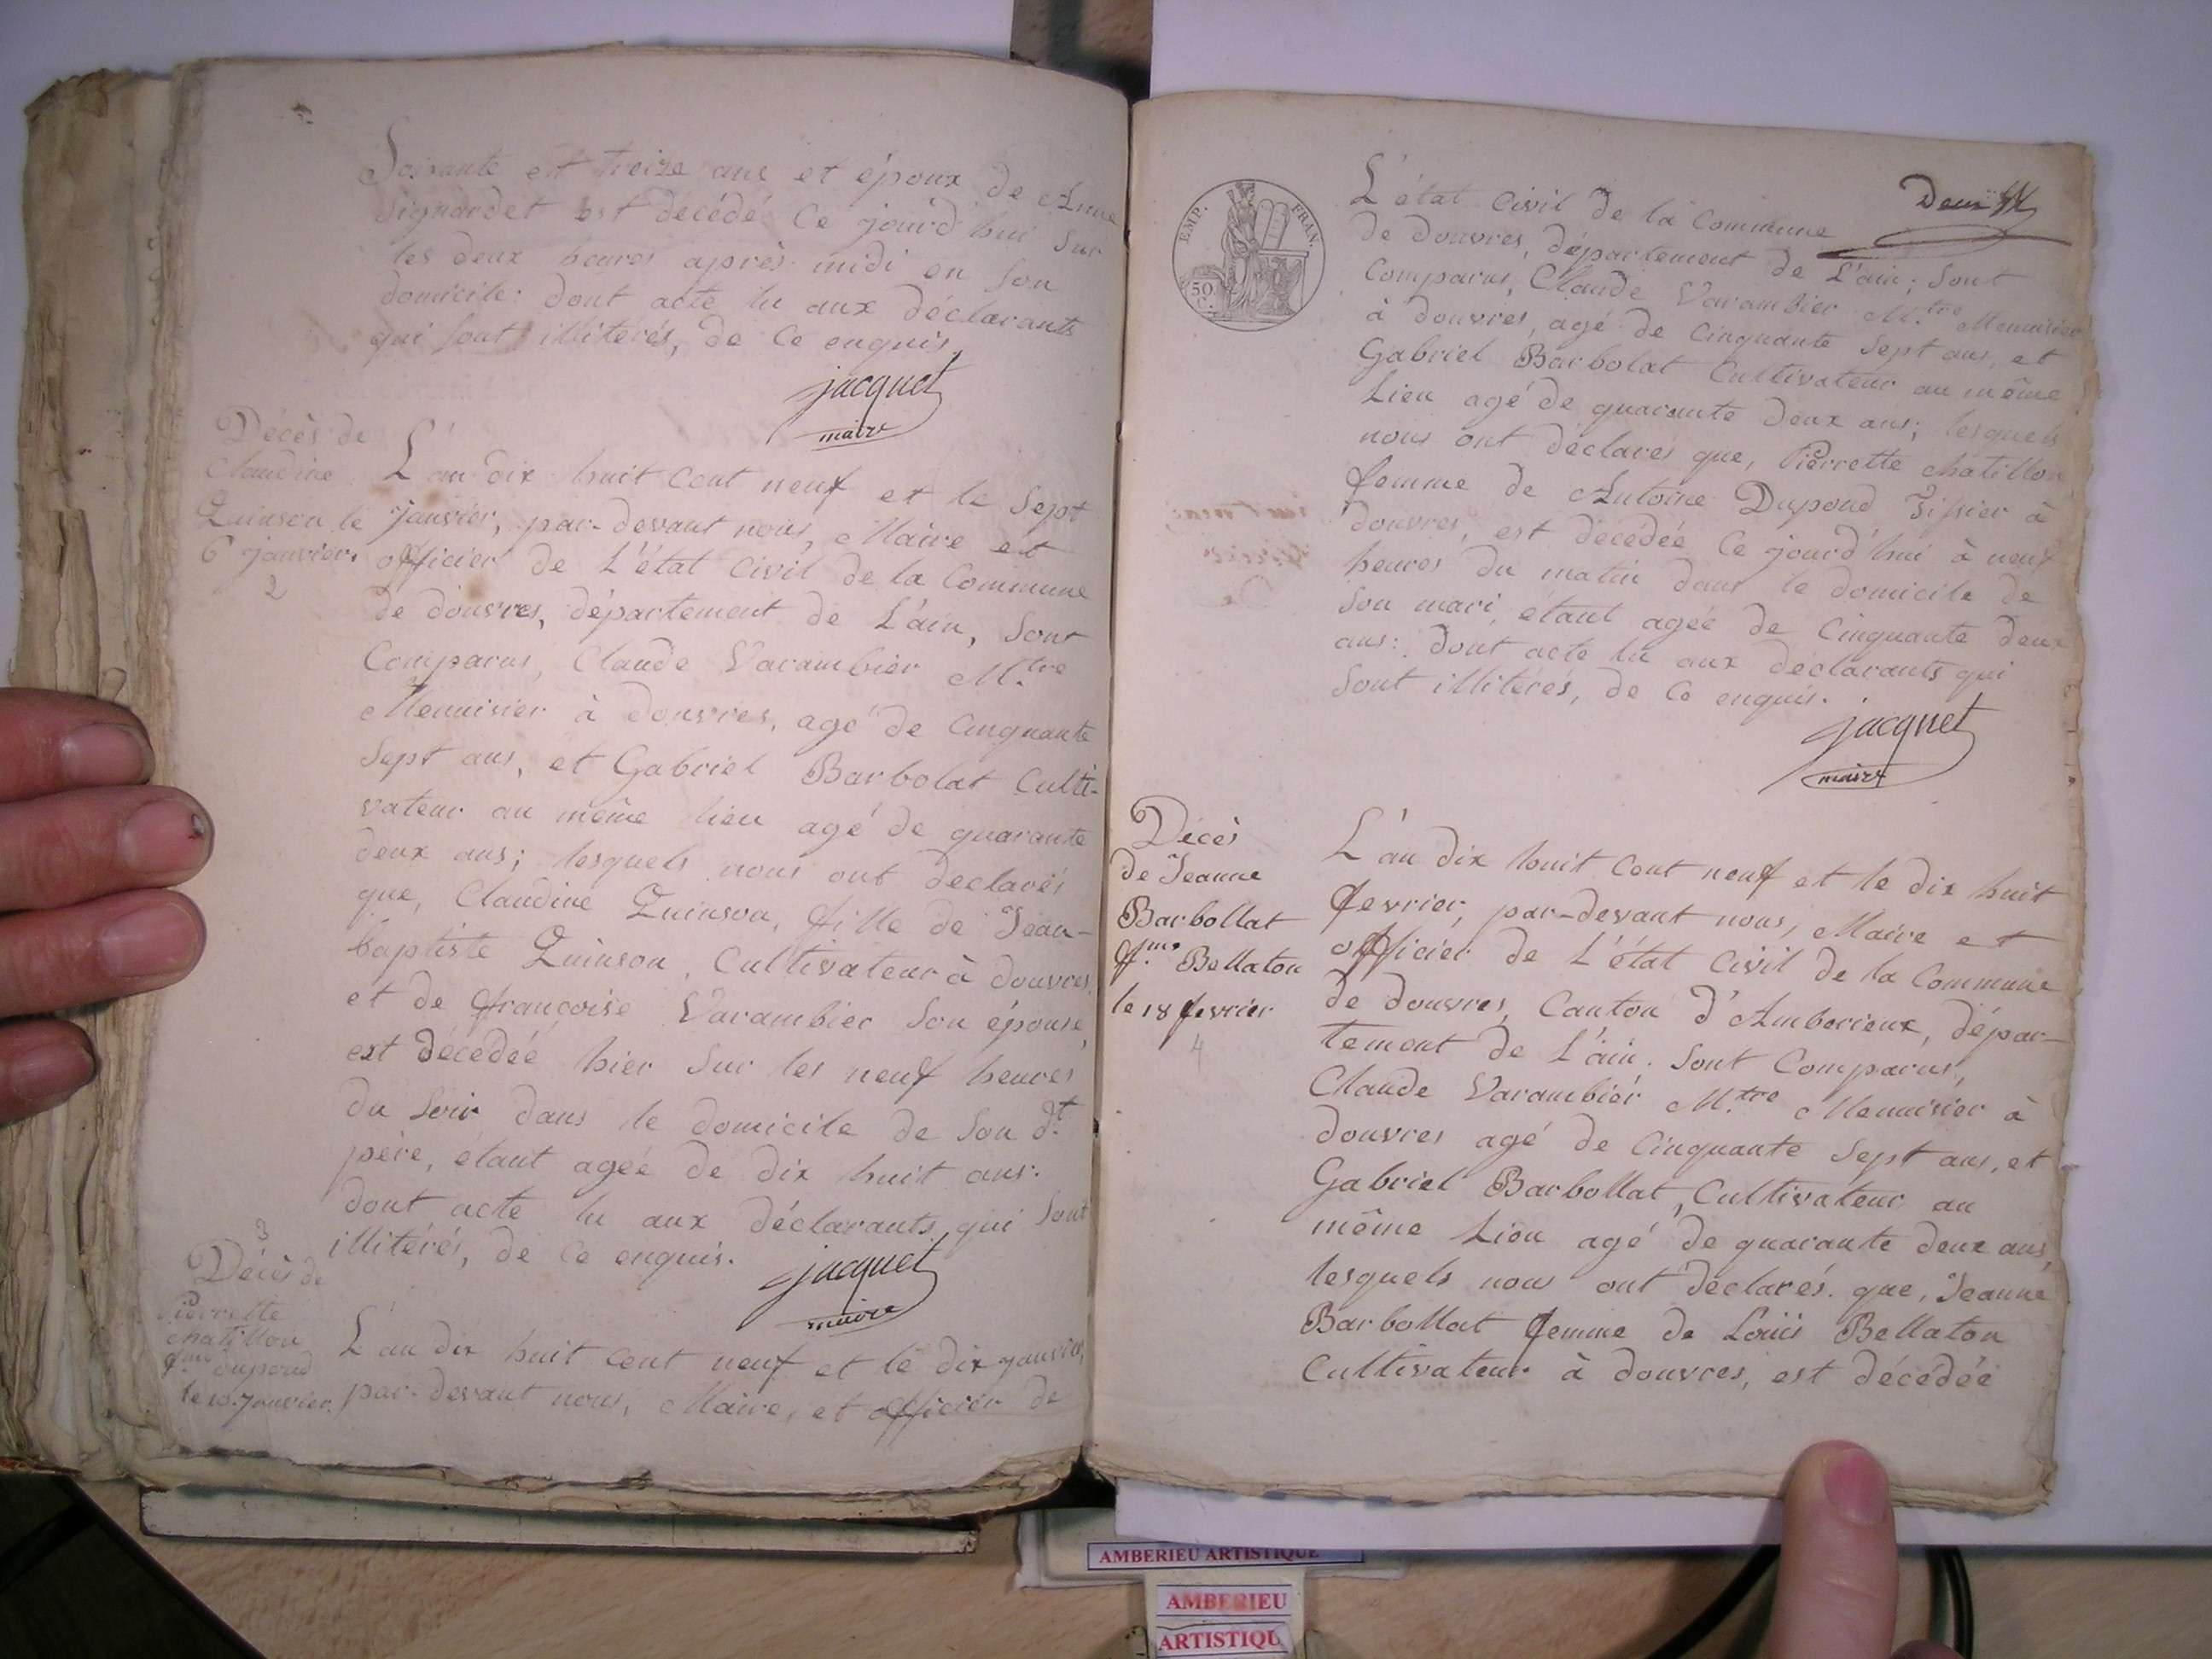 Soixante et treize ans et époux de Anne
Signardet est décédé ce jourd'hui sur
les deux heures après midi en son
domicile: dont acte lu aux déclarants
qui sont illiterés, de ce enquis.
jacquet
maire
Décès de
Claudine
Quinson le
6 janvier.
2
L'an dix huit cent neuf et le sept
janvier, par-devant nous, Maire et
officier de L'état Civil de la Commune
de douvres, département de L'ain, sont
Comparus, Claude Varambier M.tre
Menuisier à douvres, agé de Cinquante
sept ans, et Gabriel Barbolat Culti-
vateur au même lieu agé de quarante
deux ans; lesquels nous ont declarés
que, Claudine Quinson, fille de Jean-
baptiste Quinson, Cultivateur à douvres,
et de françoise Varambier son épouse,
est décédée hier sur les neuf heures
du soir dans le domicile de son d.t
père, étant agée de dix huit ans:
dont acte lu aux déclarants qui sont
illitérés, de ce enquis.
jacquet
maire
3
Décès de
Pierrette
chatillon
f.me dupond
le 10 Janvier.
L'an dix huit cent neuf et le dix janvier,
par-devant nous, Maire, et officier de
EMP. FRAN.
50
C.
Deux
L'état Civil de la Commune
de douvres, département de L'ain; sont
Comparus, Claude Varambier M.tre Menuisier
à douvres, agé de Cinquante sept ans, et
Gabriel Barbolat Cultivateur au même
Lieu agé de quarante deux ans; lesquels
nous ont déclarés que, Pierrette chatillon
femme de Antoine Dupond Tissier à
douvres, est décédée ce jourd'hui à neuf
heures du matin dans le domicile de
son mari, étant agée de Cinquante deux
ans: dont acte lu aux déclarants qui
sont illitérés, de ce enquis.
jacquet
maire
Décès
de Jeanne
Barbollat
f.me Bellaton
le 18 fevrier
4
L'an dix huit cent neuf et le dix huit
fevrier, par-devant nous, Maire et
officier de L'état Civil de la Commune
de douvres, Canton d'Amberieux, dépar-
tement de L'ain. sont Comparus,
Claude Varambiér M.tre Menuisier à
douvres agé de Cinquante sept ans, et
Gabriel Barbollat, Cultivateur au
même Lieu agé de quarante deux ans,
lesquels nous ont déclarés que, Jeanne
Barbollat femme de Loüis Bellaton
Cultivateur à douvres, est décédée
AMBERIEU ARTISTIQUE
AMBERIEU
ARTISTIQU